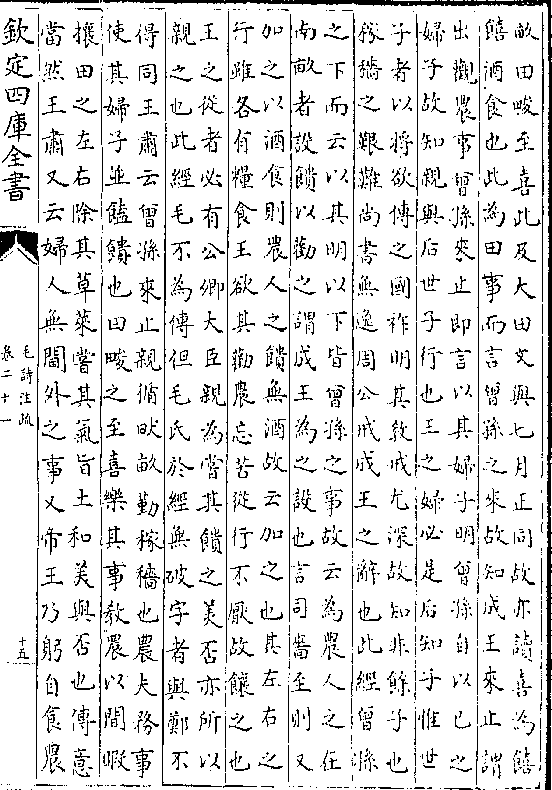 畝田畯至喜此及大田文與七月正同故亦讀喜為饎
饎酒食也此為田事而言曾孫之來故知成王來止謂
出觀農事曾孫來止即言以其婦子明曾孫自以已之
婦子故知親與后世子行也王之婦必是后知子惟世
子者以將欲傳之國祚明其敎戒尤深故知非餘子也
稼穡之艱難尚書無逸周公戒成王之辭也此經曾孫
之下而云以其明以下皆曾孫之事故云為農人之在
南畝者設饋以勸之謂成王為之設也言司嗇至則又
加之以酒食則農人之饋無酒故云加之也其左右之
行雖各有糧食王欲其勸農忘苦從行不厭故饟之也
王之從者必有公卿大臣親為嘗其饋之美否亦所以
親之也此經毛不為傳但毛氏於經無破字者與鄭不
得同王肅云曾孫來止親循畎畝勤稼穡也農夫務事
使其婦子並饁饋也田畯之至喜樂其事教農以閒暇
攘田之左右除其草萊嘗其氣旨土和美與否也傳意
當然王肅又云婦人無閫外之事又帝王乃躬自食農
欽定四庫全書
毛詩注疏
卷二十一
十五